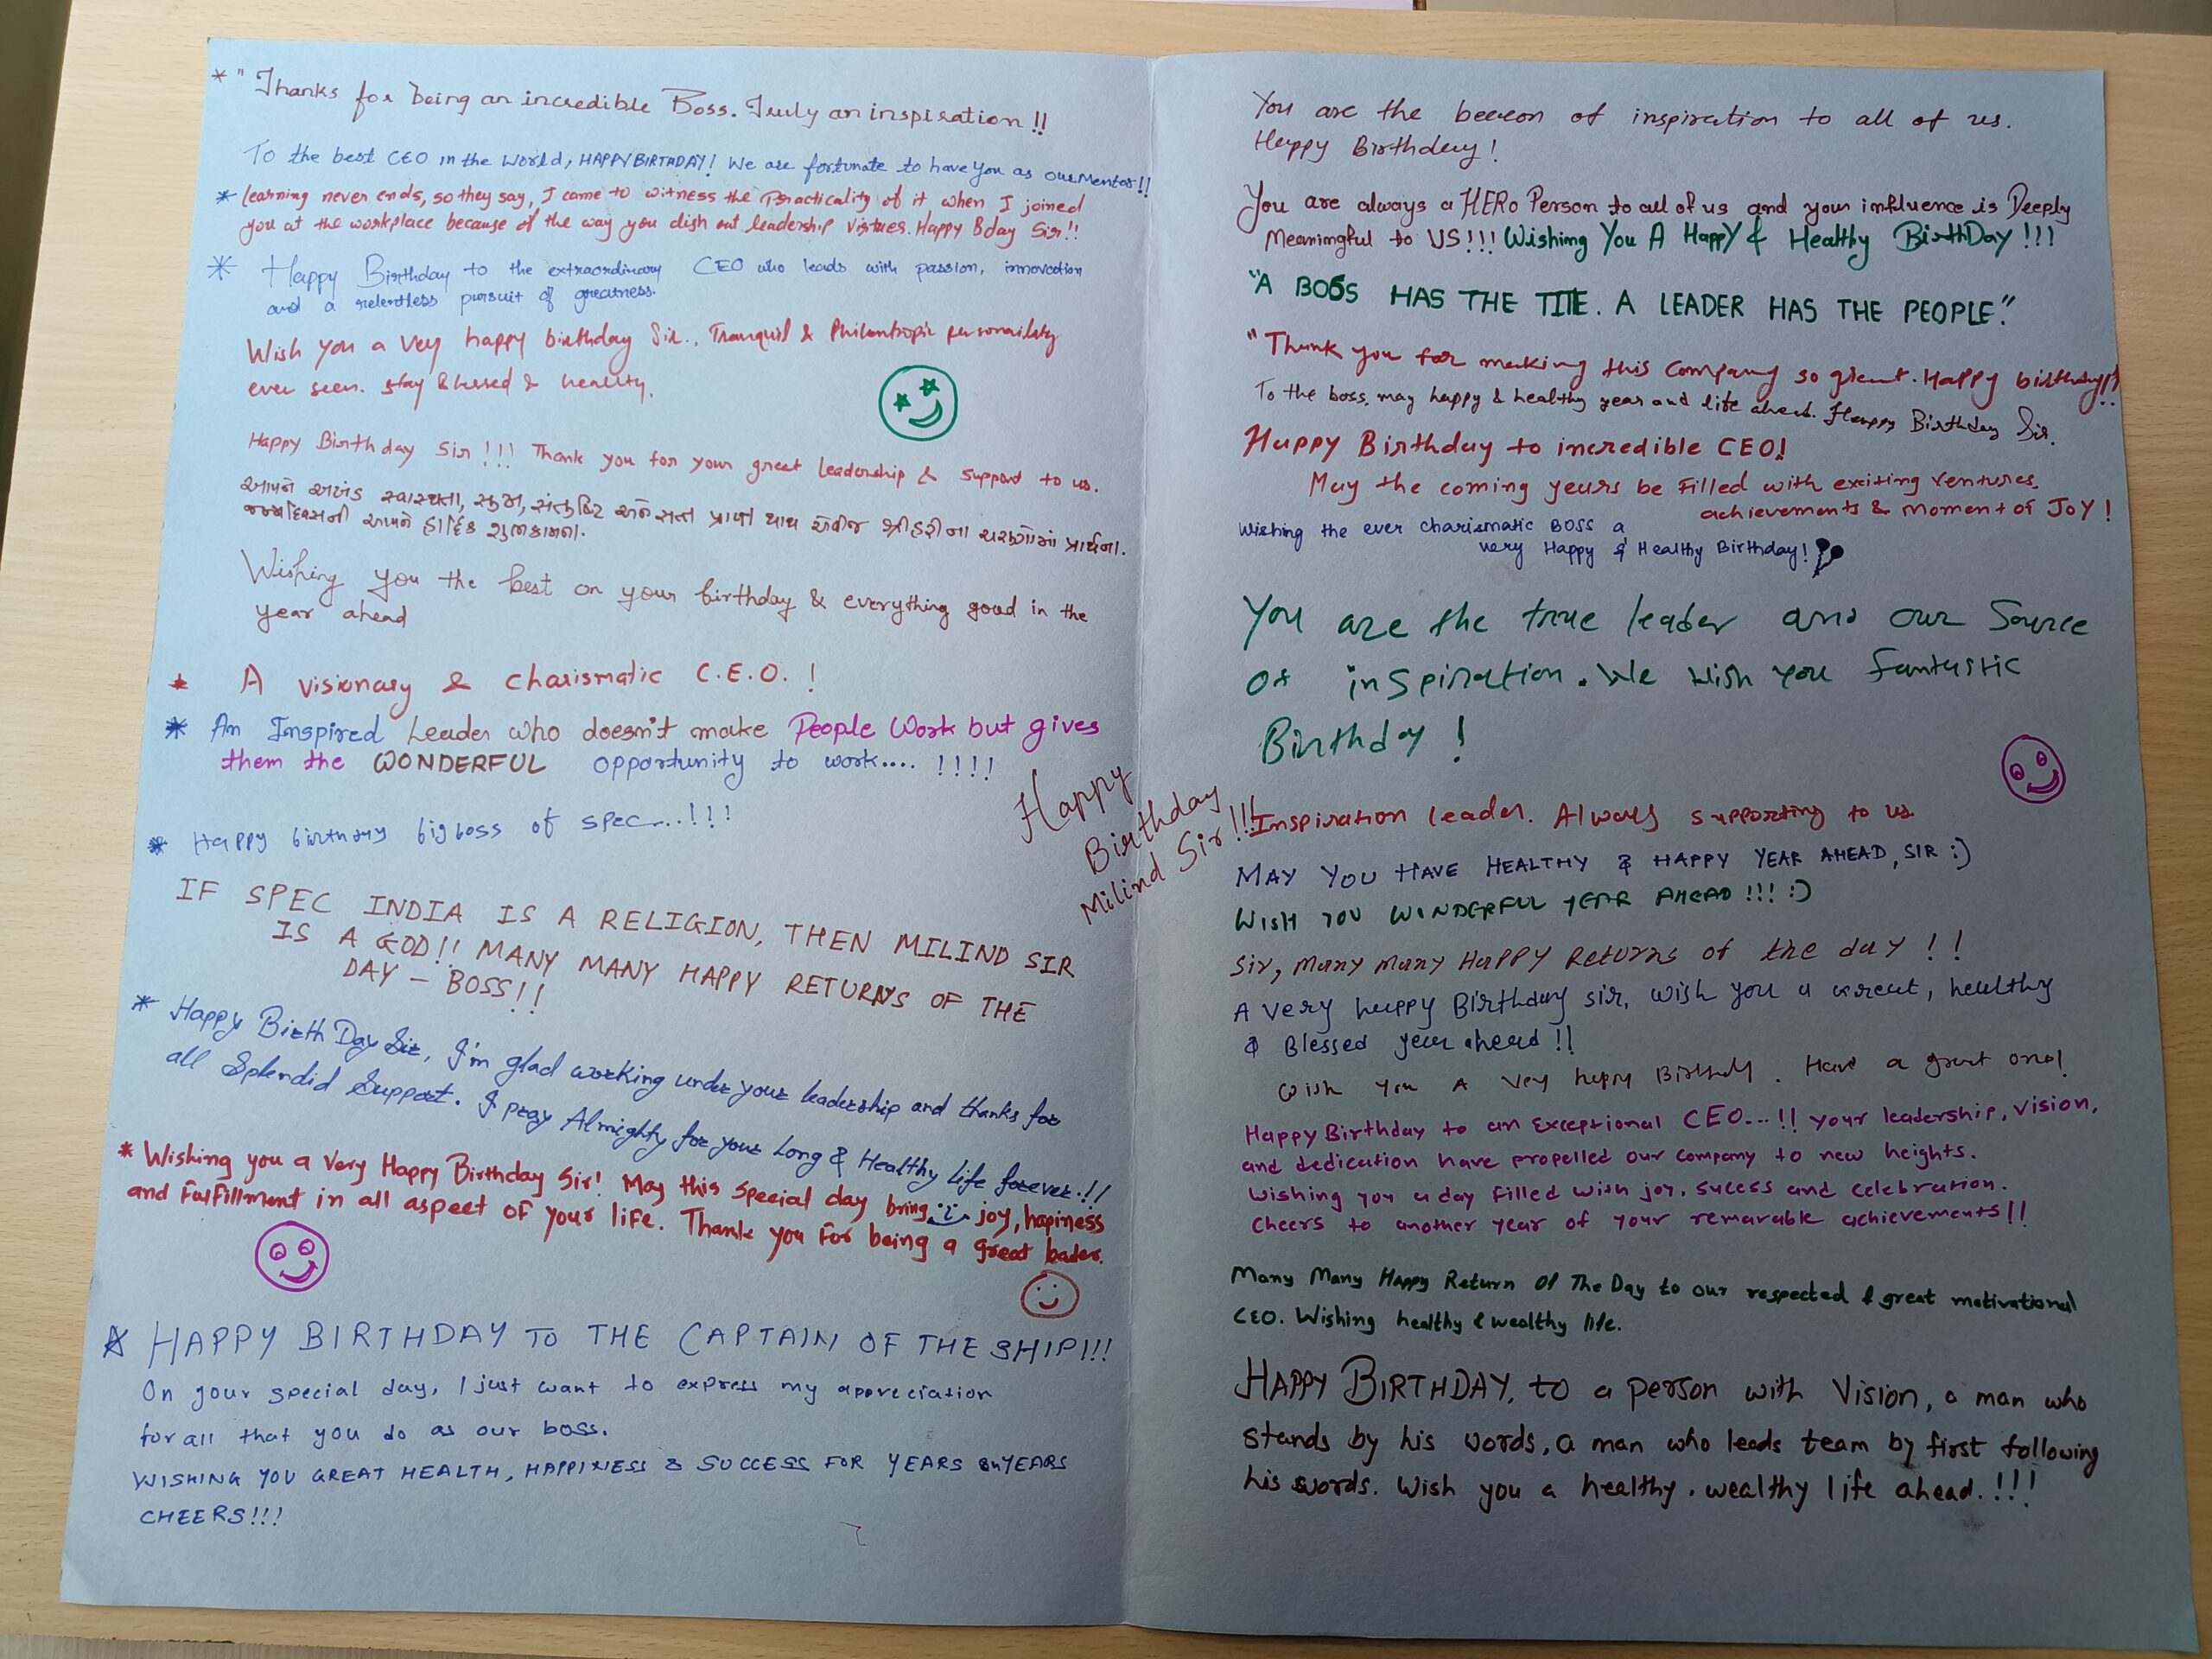 * " Thanks for being an incredible Boss. Truly an inspiration !!
To the best CEO in the World, HAPPY BIRTHDAY! We are fortunate to have You as our Mentor!!
* learning never ends, so they say, I came to witness the Practicality of it when I joined
you at the workplace because of the way you dish out leadership virtues. Happy Bday Sir!!
* Happy Birthday to the extraordinary CEO who leads with passion, innovation
and a relentless pursuit of greatness.
Wish you a very happy birthday Sir., Tranquil & Philantropic personality
ever seen. stay blessed & healthy.
Happy Birthday Sir !!! Thank you for your great leadership & support to us.
આપને અખંડ સ્વાસ્થતા, સુજ્ઞ, સંતુષ્ટિ અને સત્તા પ્રાપ્ત થાય એવીજ શ્રીહરી ના ચરણોમાં પ્રાર્થના.
જન્મદિવસની આપને હાર્દિક શુભકામના.
Wishing you the best on your birthday & everything good in the
year ahead
* A visionary & charismatic C.E.O. !
* An Inspired Leader who doesn't make People Work but gives
them the WONDERFUL opportunity to work.... !!!!
* Happy birthday big boss of spec...!!!
IF SPEC INDIA IS A RELIGION, THEN MILIND SIR
IS A GOD!! MANY MANY HAPPY RETURNS OF THE
DAY - BOSS!!
* Happy Birth Day Sir, I'm glad working under your leadership and thanks for
all Splendid Support. I pray Almighty for your Long & Healthy life forever.!!
* Wishing you a very Happy Birthday Sir! May this special day bring joy, hapiness
and fulfillment in all aspect of your life. Thank you for being a great leader.
* HAPPY BIRTHDAY TO THE CAPTAIN OF THE SHIP!!!
On your special day, I just want to express my appreciation
for all that you do as our boss.
WISHING YOU GREAT HEALTH, HAPPINESS & SUCCESS FOR YEARS ON YEARS
CHEERS!!!
Happy
Birthday
Milind Sir !!!
You are the beacon of inspiration to all of us.
Happy Birthday!
You are always a HERO Person to all of us and your influence is Deeply
Meaningful to US!!! Wishing You A Happy & Healthy BirthDay !!!
"A BOSS HAS THE TITE. A LEADER HAS THE PEOPLE."
"Thank you for making this Company so great. Happy birthday!!
To the boss, may happy & healthy year and life ahead. Happy Birthday Sir.
Happy Birthday to incredible CEO!
May the coming years be Filled with exciting ventures,
achievements & moment of JOY!
Wishing the ever charismatic BOSS a
very Happy & Healthy Birthday!
You are the true leader and our Source
of inspiration. We wish you fantastic
Birthday !
Inspiration leader. Always supporting to us.
MAY YOU HAVE HEALTHY & HAPPY YEAR AHEAD, SIR :)
WISH YOU WONDERFUL YEAR AHEAD !!! :)
Sir, Many Many Happy Returns of the day !!
A very happy Birthday sir, wish you a great, healthy
& Blessed year ahead !!
Wish you A very happy Birthday. Have a great one!
Happy Birthday to an Exceptional CEO...!! Your leadership, vision,
and dedication have propelled our company to new heights.
Wishing you a day filled with joy, sucess and celebration.
Cheers to another year of your remarable achievements!!
Many Many Happy Return Of The Day to our respected & great motivational
CEO. Wishing healthy & wealthy life.
HAPPY BIRTHDAY, to a person with Vision, a man who
stands by his words, a man who leads team by first following
his words. Wish you a healthy. wealthy life ahead.!!!